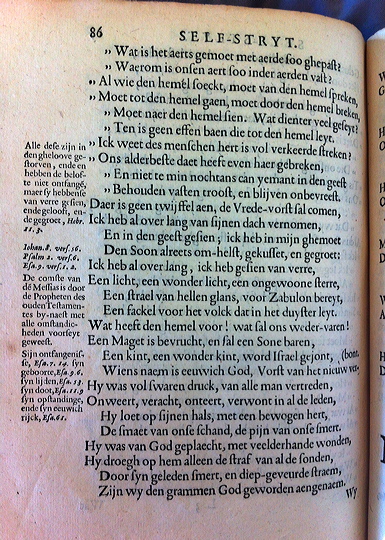 86 SELF-STRYT.
„ Wat is het aerts gemoet met aerde soo ghepast?
„ Waerom is onsen aert soo inder aerden vast?
„ Al wie den hemel soeckt, moet van den hemel spreken,
„ Moet tot den hemel gaen, moet door den hemel breken,
„ Moet naer den hemel sien. Wat dienter veel geseyt?
„ Ten is geen effen baen die tot den hemel leyt.
„ Ick weet des menschen hert is vol verkeerde streken?
„ Ons alderbeste daet heeft even haer gebreken,
„ En niet te min nochtans can yemant in den geest
„ Behouden vasten troost, en blijven onbevreest.
Daer is geen twijffel aen, de Vrede-vorst sal comen,
Ick heb al over lang van sijnen dach vernomen,
En in den geest gesien; ick heb in mijn ghemoet
Den Soon alreets om-helst, gekusset, en gegroet:
Ick heb al over lang, ick heb gesien van verre,
Een licht, een wonder licht, een ongewoone sterre,
Een strael van hellen glans, voor Zabulon bereyt,
Een fackel voor het volck dat in het duyster leyt.
Wat heeft den hemel voor! wat sal ons weder-varen!
Een Maget is bevrucht, en sal een Sone baren,
Een kint, een wonder kint, word Israel gejont, (bont.
Wiens naem is eeuwich God, Vorst van het nieuw ver-
Hy was vol swaren druck, van alle man vertreden,
Onweert, veracht, onteert, verwont in al de leden,
Hy loet op sijnen hals, met een bewogen hert,
De smaet van onse schand, de pijn van onse smert.
Hy was van God geplaecht, met veelderhande wonden,
Hy droegh op hem alleen de straf van al de sonden,
Door sijn geleden smert, en diep-geveurde straem,
Zijn wy den grammen God geworden aengenaem.
Wy
Alle dese zijn in
den gheloove ge-
storven, ende en
hebben de belof-
te niet ontfangē,
maer sy hebbense
van verre gesien,
ende gelooft, en-
de gegroet, Hebr.
11.3.
Iohan. 8. vers. 56.
Psalm 2. vers. 6.
Esa. 9. vers. 1. 2.
De comste van
de Messias is door
de Propheten des
ouden Testamen-
tes by-naest met
alle omstandic-
heden voorseyt
geweest.
Sijn ontfangenis-
se, Esa. 7. 14. sijn
geboorte, Esa. 9. 6.
sijn lijden, Esa. 53.
sijn doot, Esa. 11. 9
sijn opstandinge,
ende sijn eeuwich
rijck, Esa. 61.